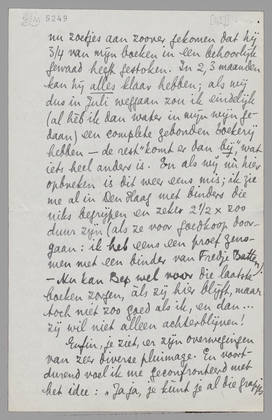 S249
nu zoetjes aan zoover gekomen dat hij
3/4 van mijn boeken in een behoorlijk
gewaad heeft gestoken. In 2,3 maanden
kan hij alles klaar hebben; als wij
dus in Juli weggaan zou ik eindelijk
(al heb ik dan water in mijn wijn ge-
daan) een complete gebonden boekerij
hebben — de rest "komt er dan bij", wat
iets heel anders is. En als wij nù hier
opbreken is dit weer eens mis; ik zie
me al in Den Haag met binders die
niks begrijpen en zeker 2½ x zoo
duur zijn (als ze voor goedkoop door-
gaan: ik heb eens een proef geno-
men met een binder van Fredje Batten)
— Nu kan Bep wel voor die laatste
boeken zorgen, àls zij hier blijft, maar
toch niet zoo goed als ik, en dan...
zij wil niet alleen achterblijven!
Enfin, je ziet, er zijn overwegingen
van zeer diverse pluimage. En voort-
durend voel ik me geconfronteerd met
het idee: "Ja ja, je kunt je al die grapjes